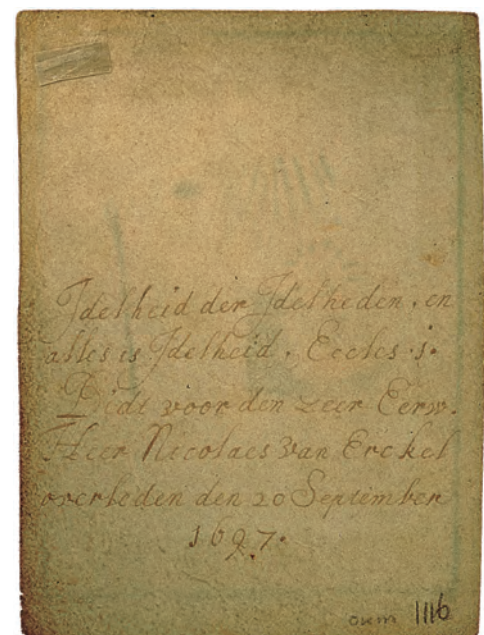 Jdelheid der Jdelheden . en
alles is Jdelheid . Eccles . 1 .
Bidt voor den zeer Eerw .
Heer Nicolaes Van Erckel
overleden den 20 September
1697 .
OKM 1116